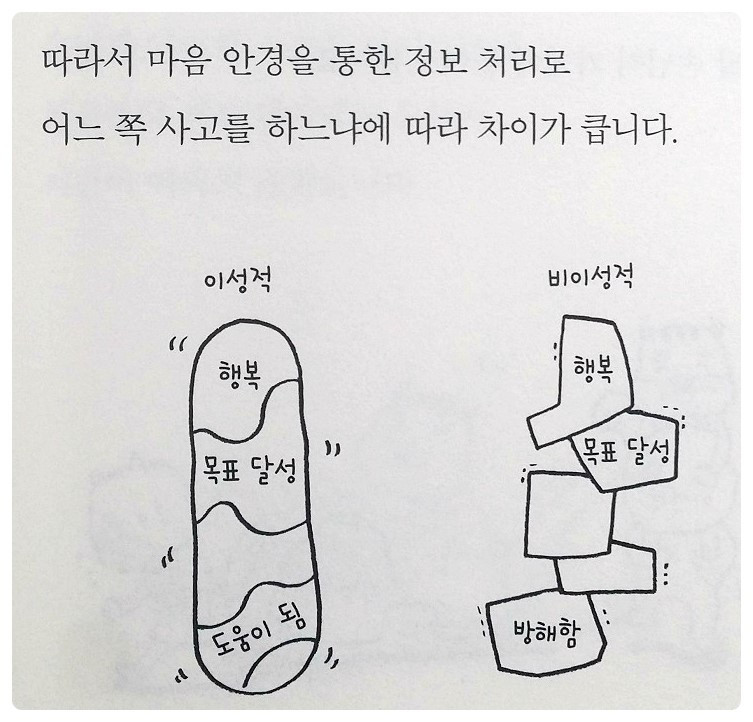 따라서 마음 안경을 통한 정보 처리로
어느 쪽 사고를 하느냐에 따라 차이가 큽니다.
이성적
행복
목표 달성
도움이 됨
비이성적
행복
목표 달성
방해함